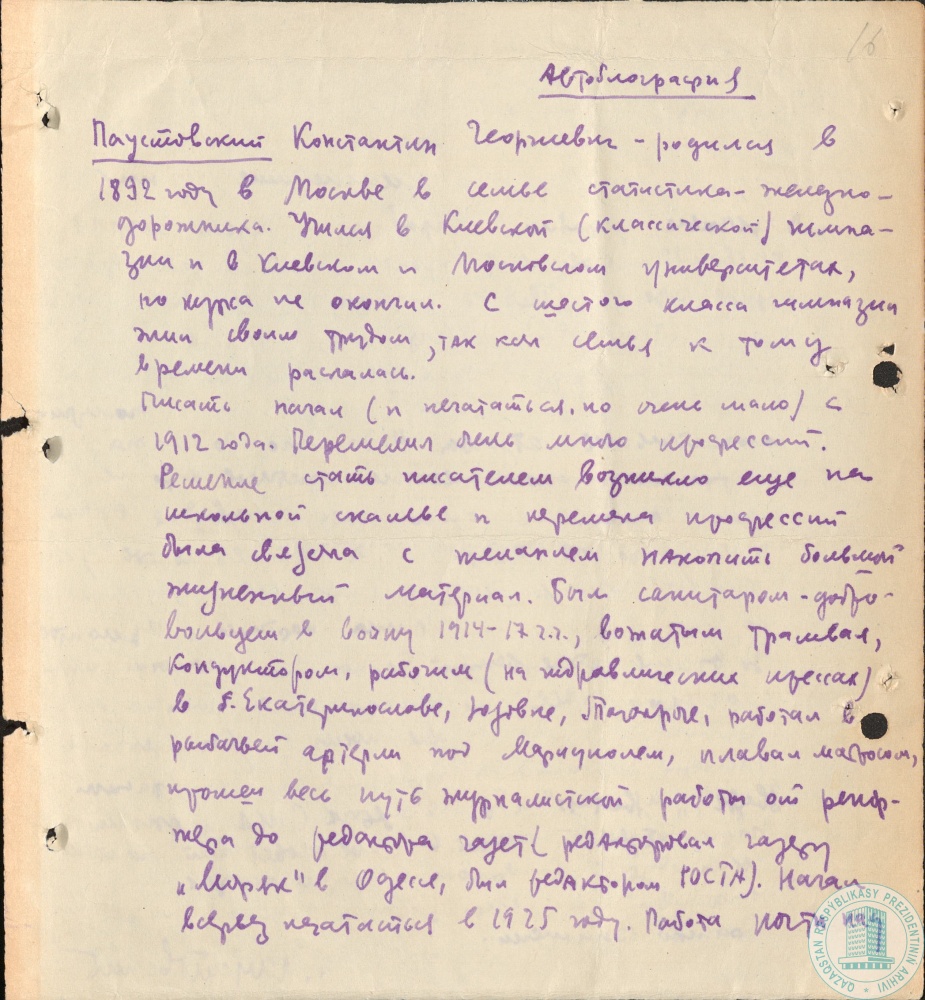 16
Автобиография
Паустовский Константин Георгиевич - родился в
1892 году в Москве в семье статистика-железно-
дорожника. Учился в Киевской (классической) гимна-
зии и в Киевском и Московском университетах,
но курса не окончил. С шестого класса гимназии
жил своим трудом, так как семья к тому
времени распалась.
Писать начал (и печататься, но очень мало) с
1912 года. Переменил очень много профессий.
Решение стать писателем возникло еще на
школьной скамье и перемена профессий
была связана с желанием накопить большой
жизненный материал. Был санитаром-добро-
вольцем в войну 1914-17 г.г., вожатым трамвая,
кондуктором, рабочим (на гидравлических прессах)
в б. Екатеринославе, Юзовке, Таганроге, работал в
рыбачьей артели под Мариуполем, плавал матросом,
прошел весь путь журналистской работы от репор-
тера до редактора газет (редактировал газету
"Моряк" в Одессе, был редактором РОСТА). Начал
всерьез печататься в 1925 году. Работа
QAZAQSTAN RESPÝBLIKASY PREZIDENTININ ARHIVI